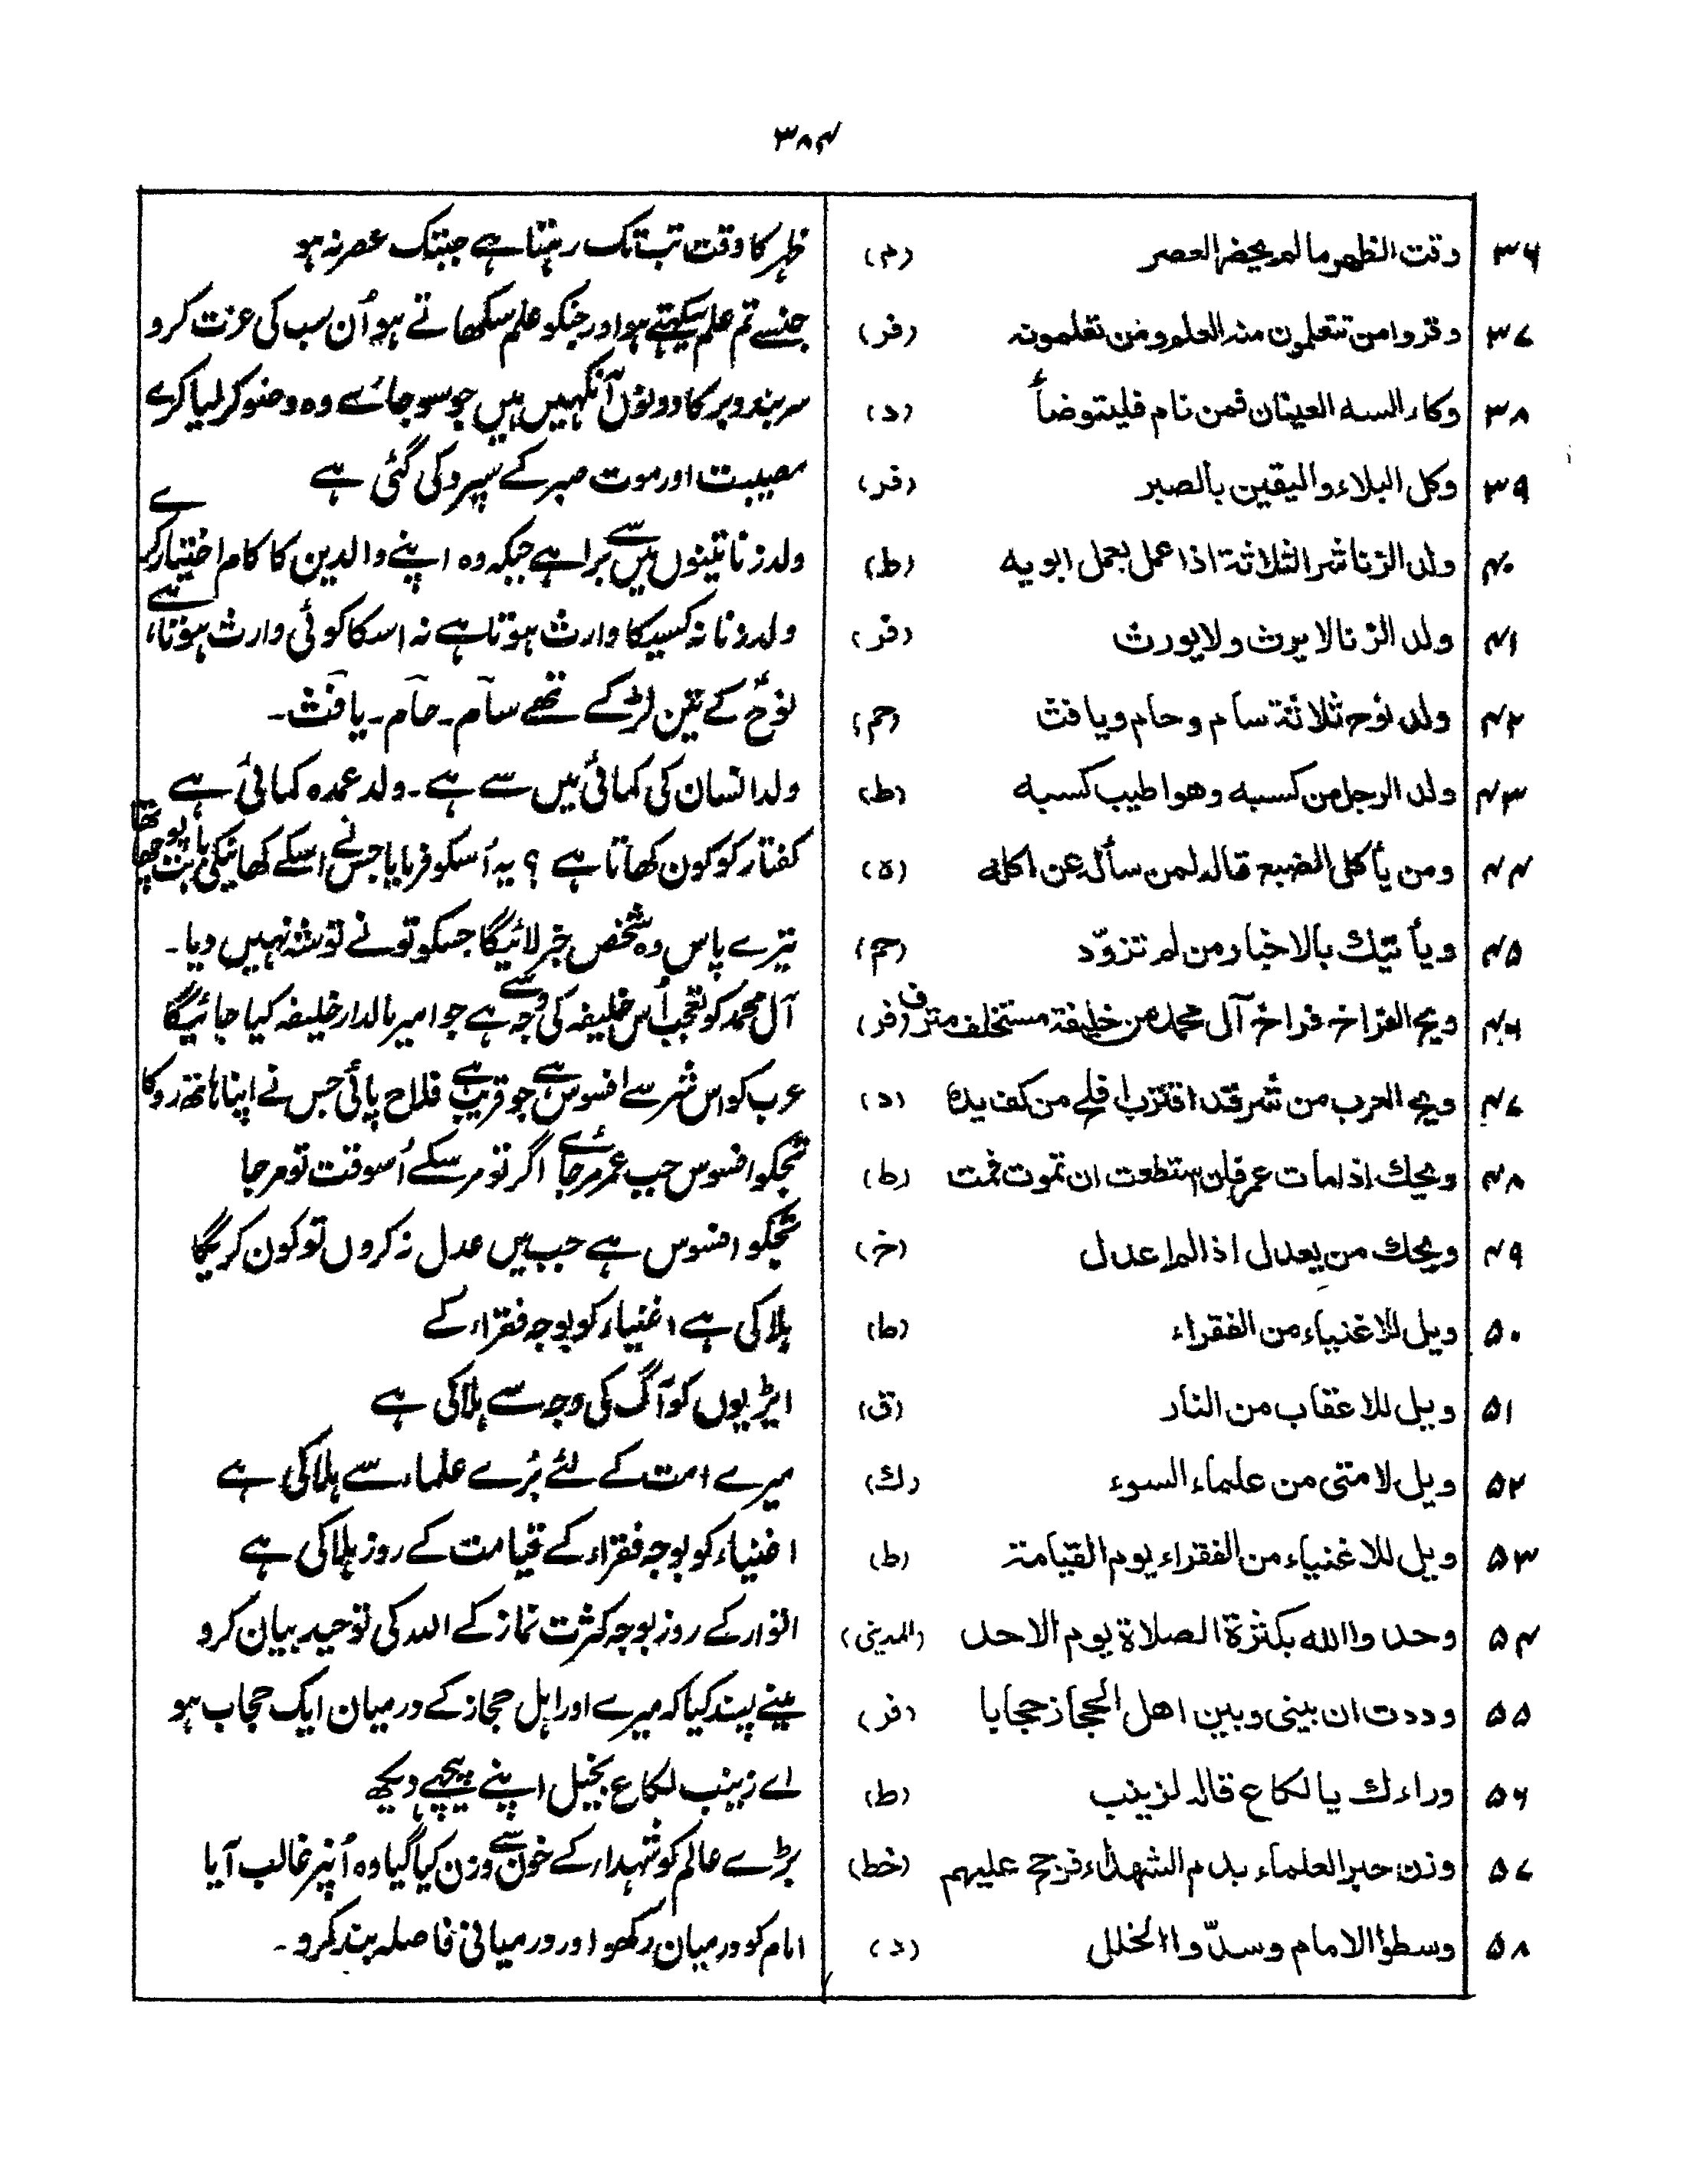 ۳۸۴
۳۶ وقت الظهر مالم يحضر العصر (م) ظہر کا وقت تب تک رہتا ہے جبتک عصر نہ ہو
۳۷ وقروا من تتعلمون منه العلم ومن تعلمونه (فر) جنسے تم علم سیکھتے ہو اور جنکو علم سکھاتے ہو اُن سب کی عزت کرو
۳۸ وكاء السه العينان فمن نام فليتوضأ (د) سربند دوپر کا دونوں آنکہیں ہیں جو سو جائے وہ وضو کر لیا کرے
۳۹ وكل البلاء واليقين بالصبر (فر) مصیبت اور موت صبر کے سپرد کی گئی ہے
۴۰ ولد الزنا شر الثلاثة اذا عمل بعمل ابويه (ط) ولد زنا تینوں میں سے برا ہے جبکہ وہ اپنے والدین کا کام اختیار کرے
۴۱ ولد الزنا لا يرث ولا يورث (فر) ولد زنا نہ کسیکا وارث ہوتا ہے نہ اسکا کوئی وارث ہوتا ہے
۴۲ ولد نوح ثلاثة سام وحام ويافث (حم) نوحؑ کے تین لڑکے تھے سام۔حام۔یافث۔
۴۳ ولد الرجل من كسبه وهو اطيب كسبه (ط) ولد انسان کی کمائی میں سے ہے۔ولد عمدہ کمائی ہے
۴۴ ومن يأكل الضبع قاله لمن سأل عن اكله (ه) کفتار کو کون کھاتا ہے ؟ یہ اُسکو فرمایا جس نے اسکے کھانیکی بابت پوچھا تھا
۴۵ ويأتيك بالاخبار من لم تزوّد (حم) تیرے پاس وہ شخص خبر لائیگا جسکو تونے توشہ نہیں دیا۔
۴۶ ويح الفراخ فراخ آل محمد من خليفة مستخلف مترف (فر) آل محمد کو تعجب اُس خلیفہ کی وجہ سے ہے جو امیر مالدار خلیفہ کیا جائیگا
۴۷ ويح العرب من شر قد اقترب افلح من كف يده (د) عرب کو اس شر سے افسوس ہے جو قریب ہے فلاح پائی جس نے اپنا ہاتھ روکا
۴۸ ويحك اذا مات عمر فان استطعت ان تموت فمت (ط) تجکو افسوس جب عمر مرجائے اگر تو مرسکے اُسوقت تو مرجا
۴۹ ويحك من يعدل اذا لم اعدل (خ) تجکو افسوس ہے جب میں عدل نہ کروں تو کون کریگا
۵۰ ويل للاغنياء من الفقراء (ط) ہلاکی ہے اغنیاء کو بوجہ فقراء کے
۵۱ ويل للاعقاب من النار (ق) ایڑیوں کو آگ کی وجہ سے ہلاکی ہے
۵۲ ويل لامتى من علماء السوء (ك) میرے امت کے لئے بُرے علماء سے ہلاکی ہے
۵۳ ويل للاغنياء من الفقراء يوم القيامة (ط) اغنیاء کو بوجہ فقراء کے قیامت کے روز ہلاکی ہے
۵۴ وحدوا الله بكثرة الصلاة يوم الاحد (المدینی) اتوار کے روز بوجہ کثرت نماز کے اللہ کی توحید بیان کرو
۵۵ وددت ان بينى وبين اهل الحجاز حجابا (فر) مینے پسند کیا کہ میرے اور اہل حجاز کے درمیان ایک حجاب ہو
۵۶ وراءك يا لكاع قاله لزينب (ط) اے زینب لکاع بخیل اپنے پیچھے دیکھ
۵۷ وزن حبر العلماء بدم الشهداء فرجح عليهم (خط) بڑے عالم کو شہداء کے خون سے وزن کیا گیا وہ اُنپر غالب آیا
۵۸ وسطوا الامام وسدّوا الخلل (د) امام کو درمیان رکھو اور درمیانی فاصلہ بند کرو۔